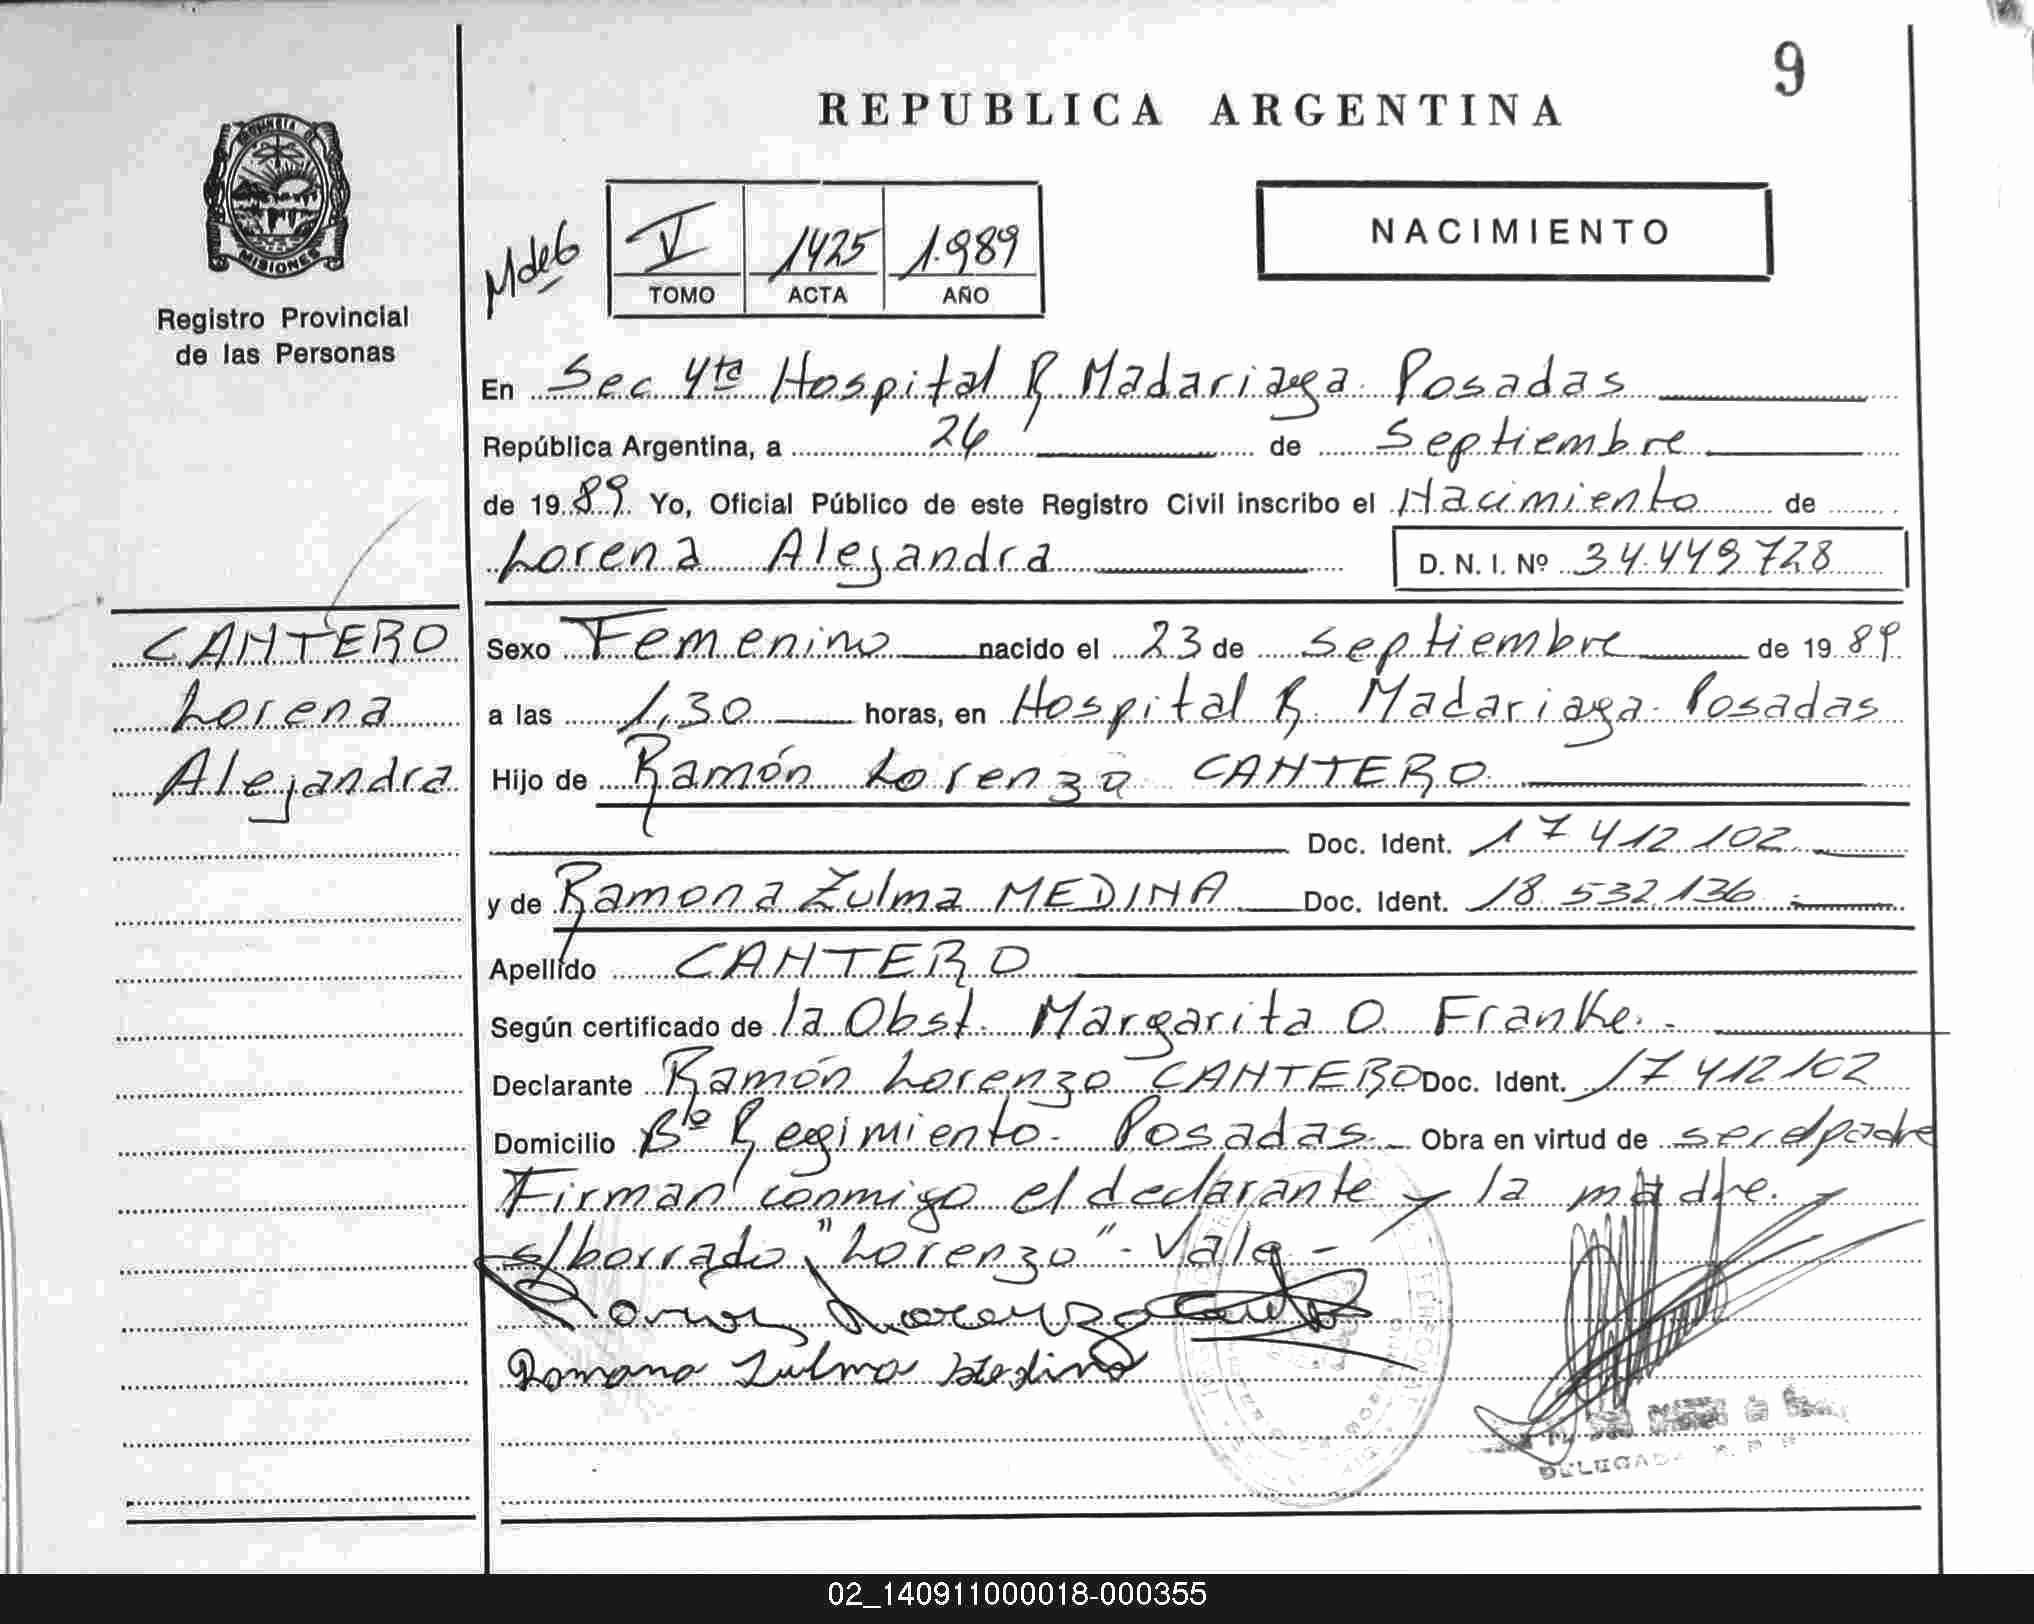 9
REPUBLICA ARGENTINA
PROVINCIA DE
MISIONES
Registro Provincial
de las Personas
Mdeb
V 1425 1.989
TOMO ACTA AÑO
NACIMIENTO
En Sec 4ta Hospital R. Madariaga. Posadas
República Argentina, a 26 de Septiembre
de 1989. Yo, Oficial Público de este Registro Civil inscribo el Nacimiento de
Lorena Alejandra D. N. I. Nº 34.449.728
CANTERO
Lorena
Alejandra
Sexo Femenino nacido el 23 de Septiembre de 1989.
a las 1,30 horas, en Hospital R. Madariaga. Posadas
Hijo de Ramón Lorenzo CANTERO
Doc. Ident. 17 412 102.
y de Ramona Zulma MEDINA Doc. Ident. 18 532 136.-
Apellido CANTERO
Según certificado de la Obst. Margarita O. Franke.-
Declarante Ramón Lorenzo CANTERO Doc. Ident. 17 412 102
Domicilio Bº Regimiento. Posadas.- Obra en virtud de ser el padre
Firman conmigo el declarante y la madre.
s/borrado "Lorenzo"- Vale-
Ramon Lorenzo Cantero
Ramona Zulma Medina
DELEGADA
02_140911000018-000355